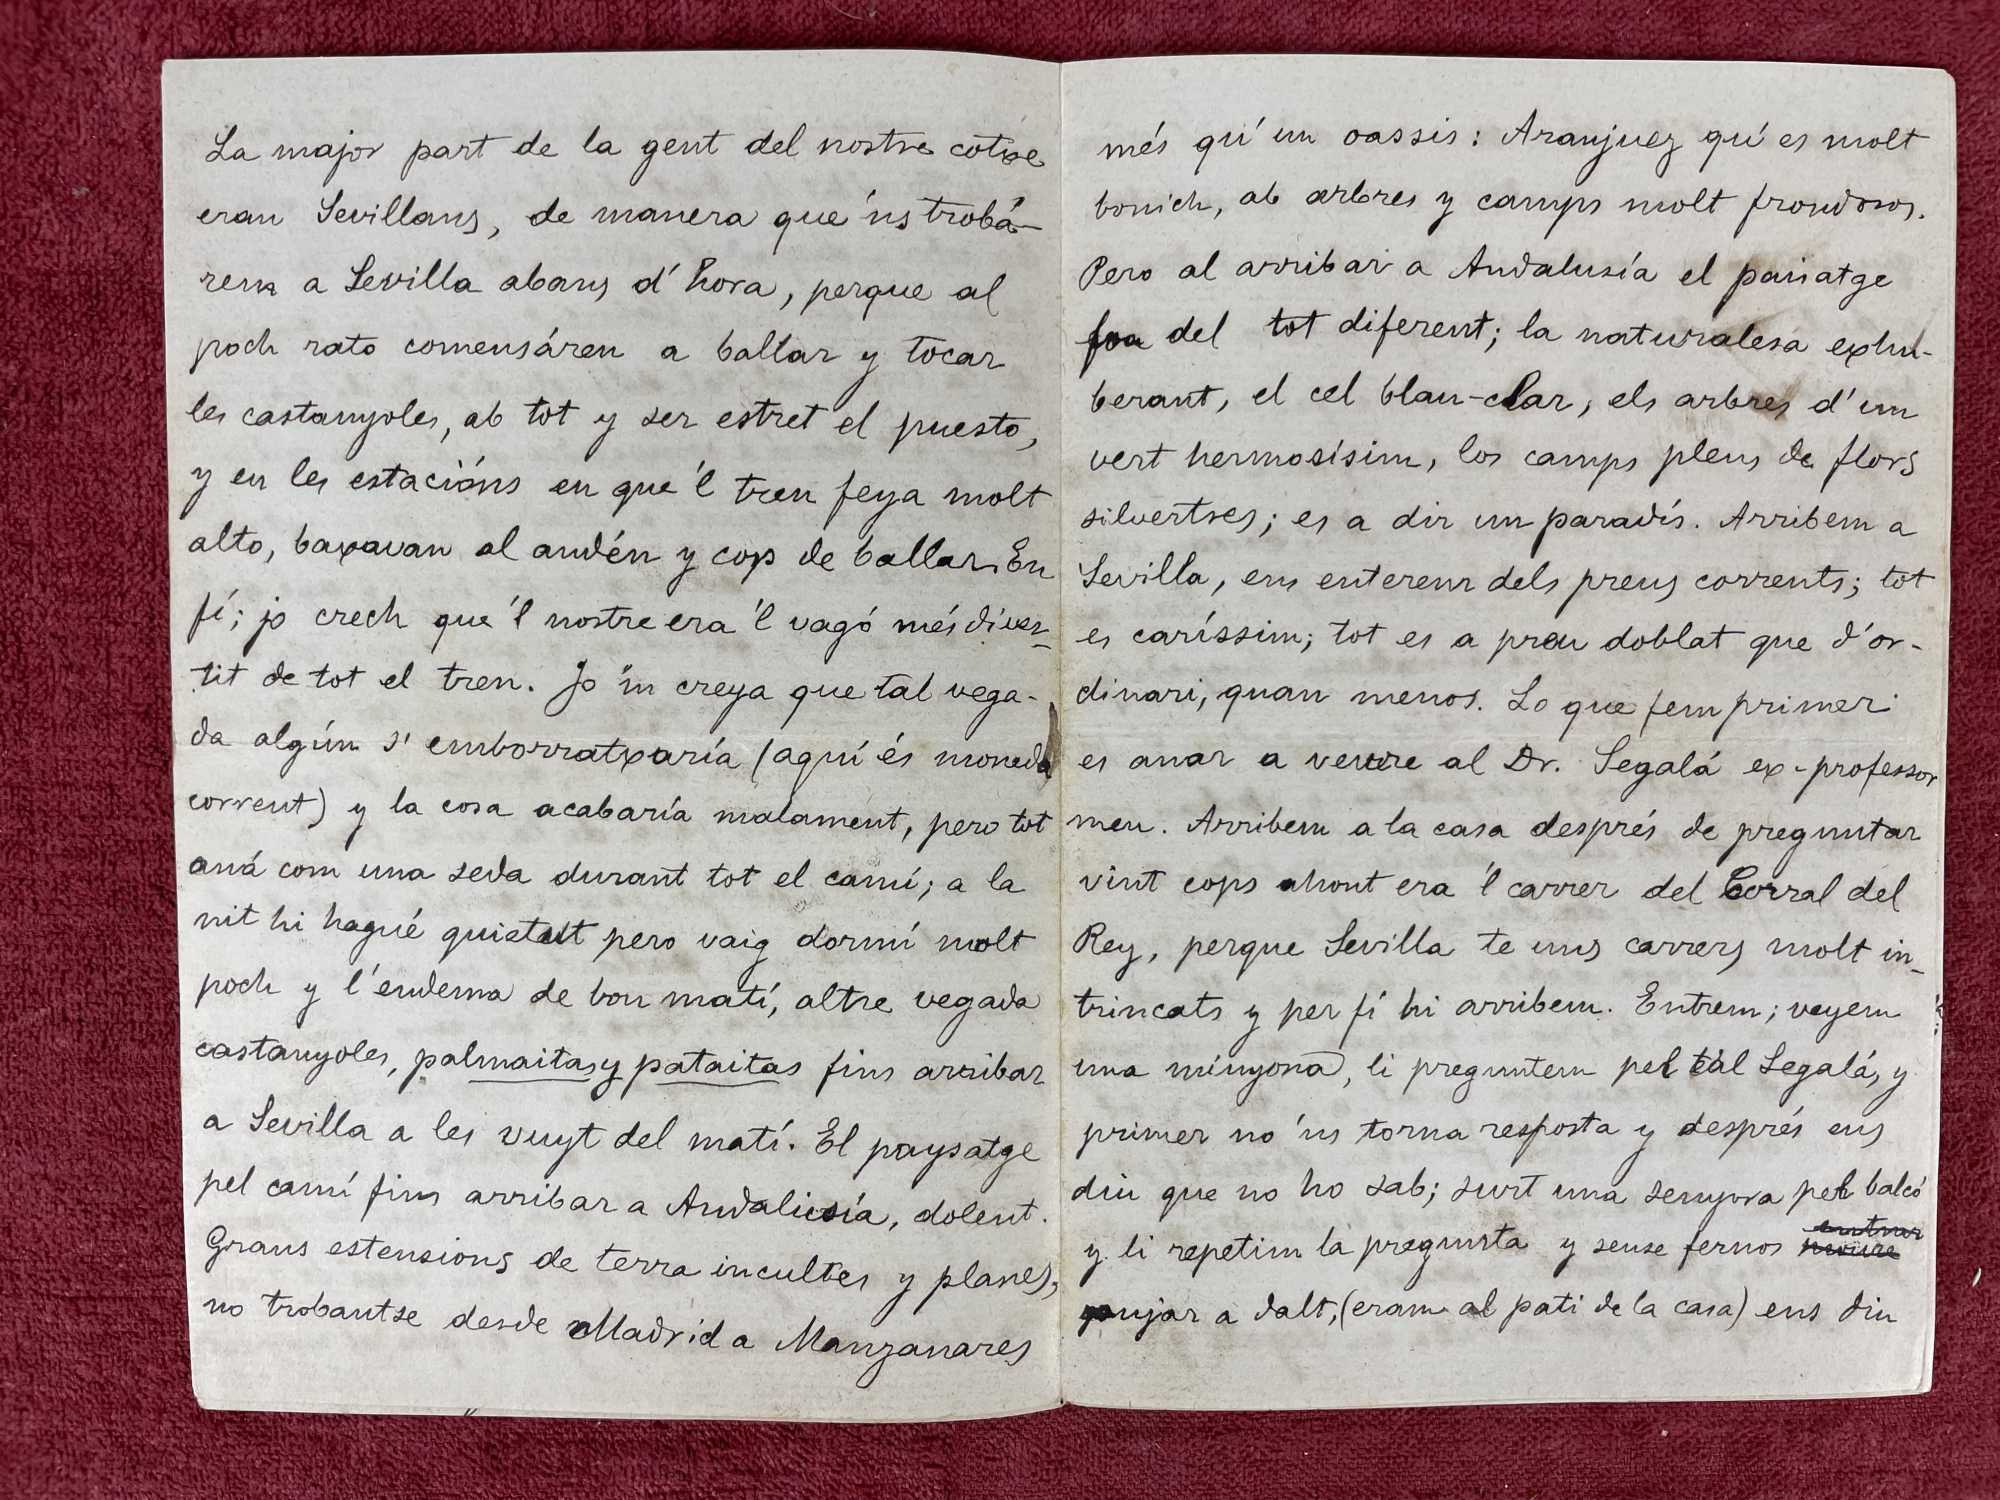 La major part de la gent del nostre cotxe
eran Sevillans, de manera que 'ns trobá-
rem a Sevilla abans d' hora, perque al
poch rato comensáren a ballar y tocar
les castanyoles, ab tot y ser estret el puesto,
y en les estacións en que 'l tren feya molt
alto, baxavan al andén y cop de ballar. En
fí; jo crech que 'l nostre era 'l vagó més diver-
tit de tot el tren. Jo 'm creya que tal vega-
da algún s' emborratxaría (aquí és moneda
corrent) y la cosa acabaría malament, pero tot
aná com una seda durant tot el camí; a la
nit hi hagué quietut pero vaig dormí molt
poch y l'endema de bon matí, altre vegada
castanyoles, palmaitas y pataitas fins arribar
a Sevilla a les vuyt del matí. El paysatge
pel camí fins arribar a Andalusía, dolent.
Grans estensions de terra incultes y planes,
no trobantse desde Madrid a Manzanares
més qu' un oassis: Aranjuez qu' es molt
bonich, ab arbres y camps molt frondosos.
Pero al arribar a Andalusía el paisatge
fou del tot diferent; la naturalesa exhu-
berant, el cel blau-clar, els arbres d' un
vert hermosísim, los camps plens de flors
silvertses; es a dir un paradís. Arribem a
Sevilla, ens enterem dels preus corrents; tot
es caríssim; tot es a preu doblat que d'or-
dinari, quan menos. Lo que fem primer
es anar a veure al Dr. Segalá ex-professor
meu. Arribem a la casa després de preguntar
vint cops ahont era 'l carrer del Corral del
Rey, perque Sevilla te uns carrers molt in-
trincats y per fí hi arribem. Entrem; veyem
una minyona, li preguntem pel tal Segalá, y
primer no 'ns torna resposta y després ens
diu que no ho sab; surt una senyora pel balcó
y li repetim la pregunta y sense fernos
entrar
moure
pujar a dalt, (eram al pati de la casa) ens diu